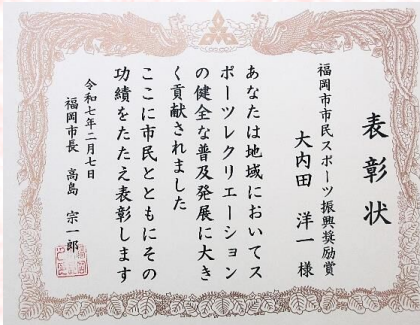 表彰状
福岡市市民スポーツ振興奨励賞
大内田 洋一 様
あなたは地域においてス
ポーツレクリエーション
の健全な普及発展に大き
く貢献されました
ここに市民とともにその
功績をたたえ表彰します
令和七年二月七日
福岡市長 高島 宗一郎